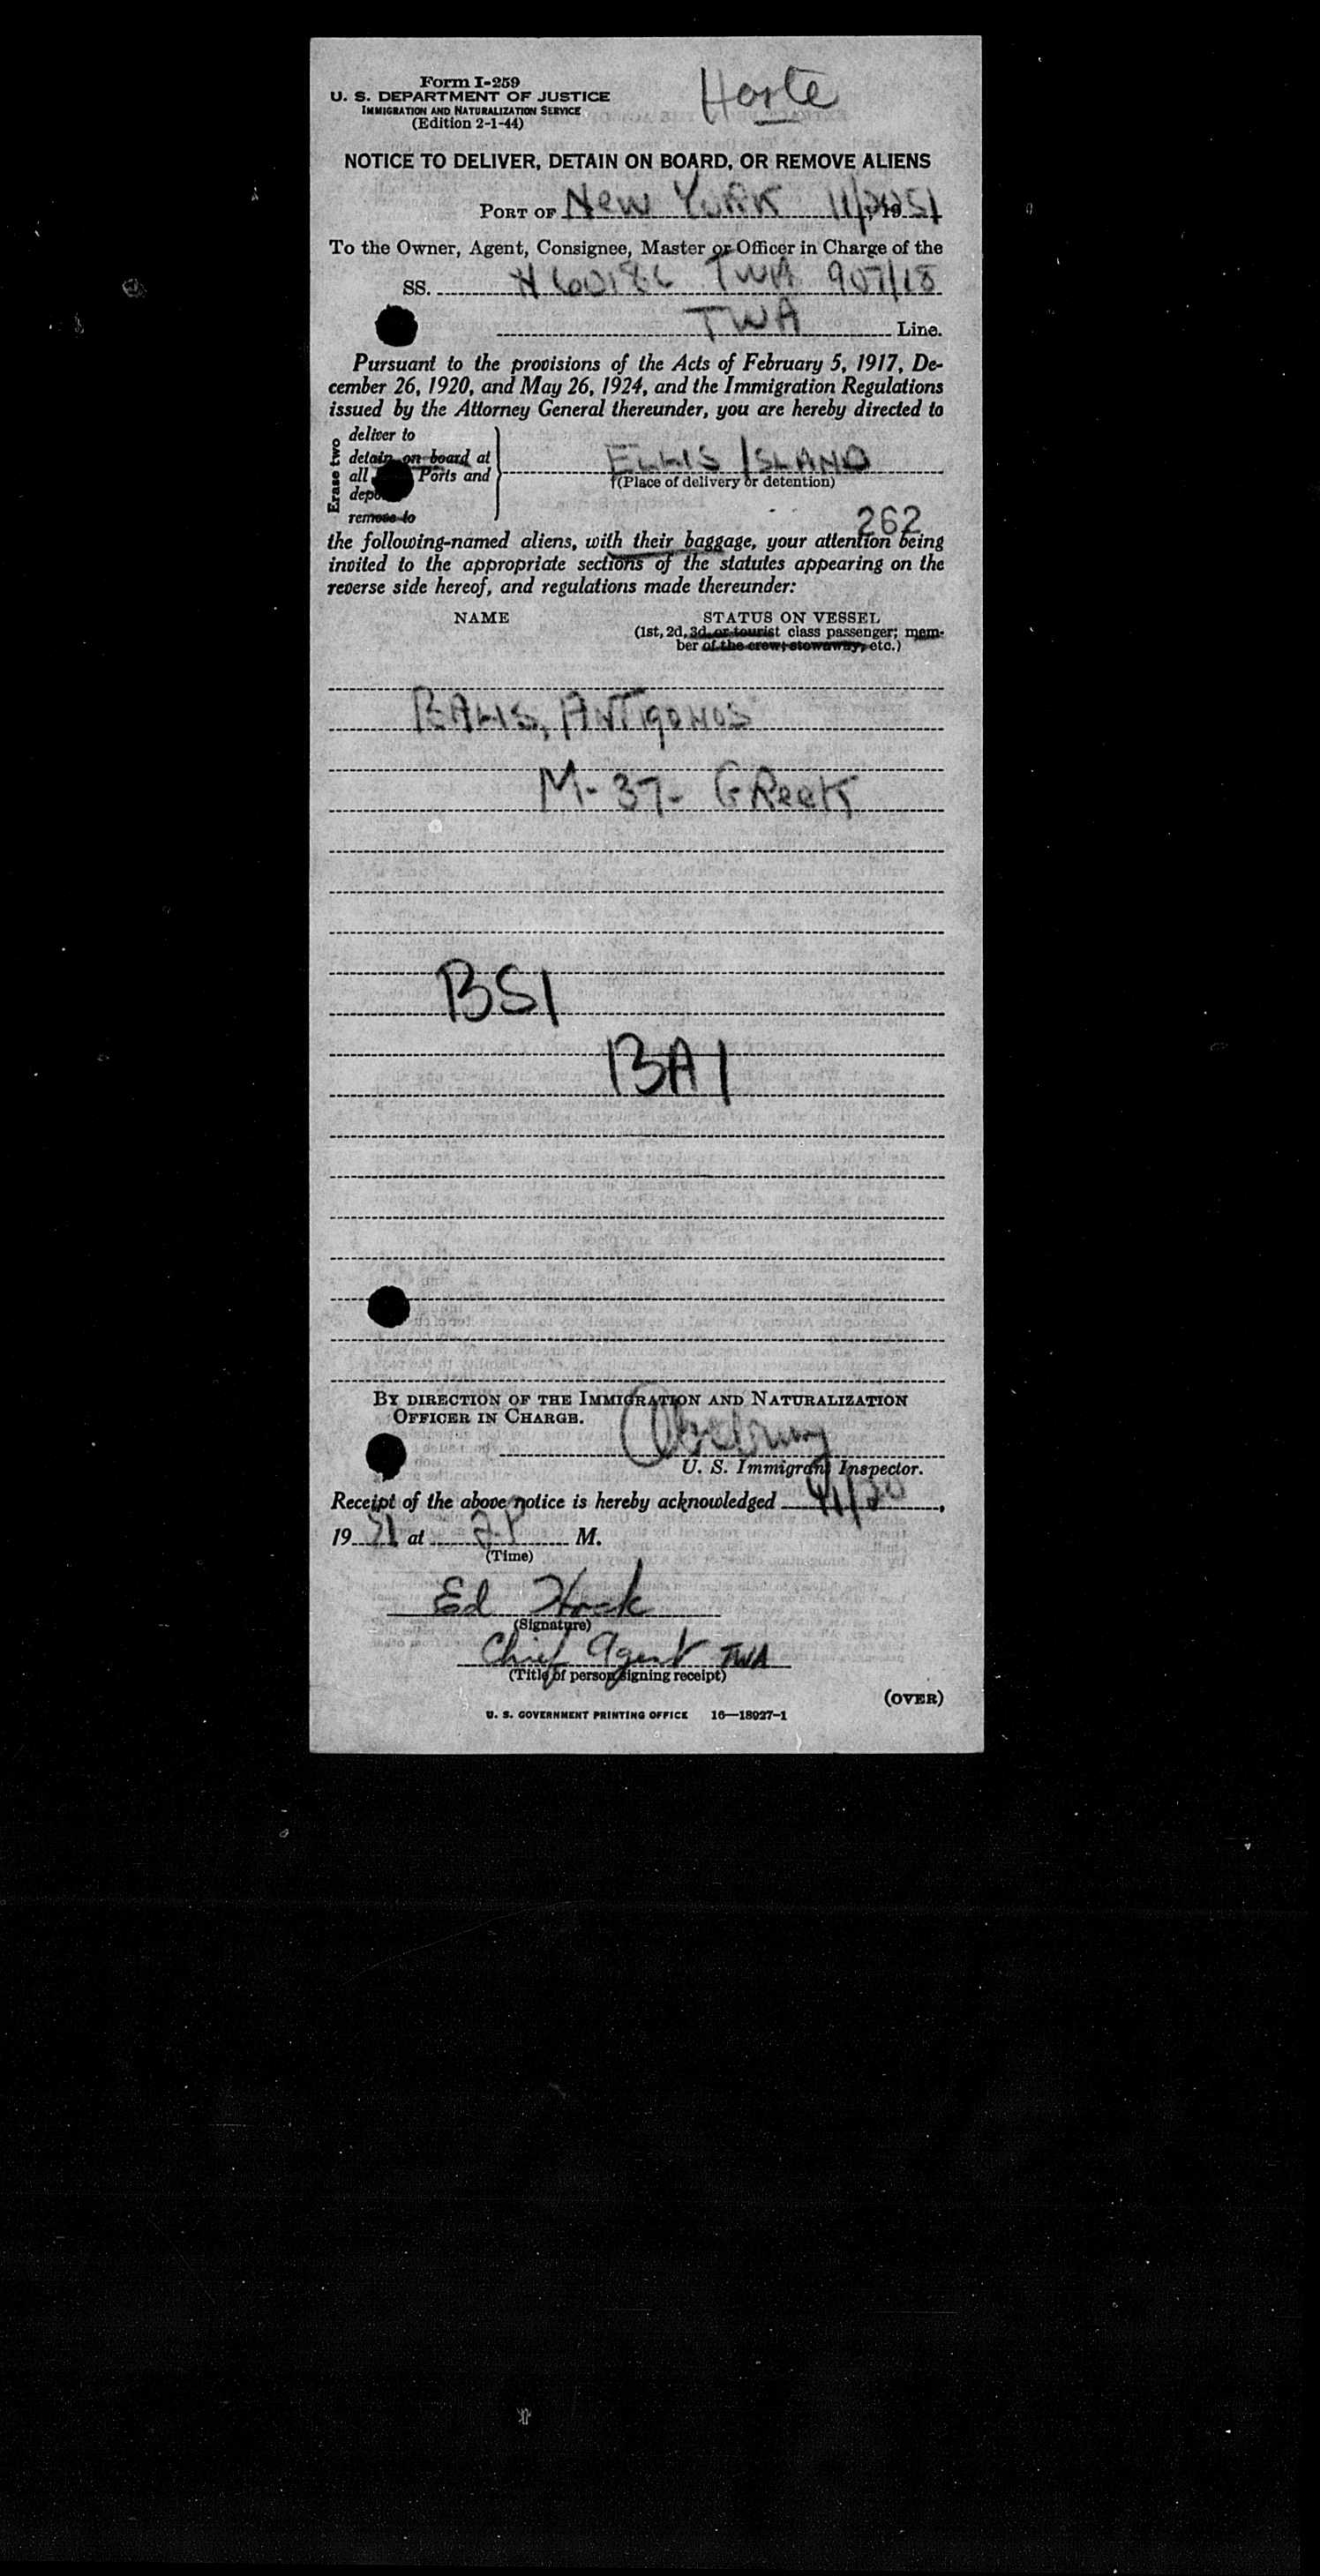 Form I-259
U. S. DEPARTMENT OF JUSTICE
IMMIGRATION AND NATURALIZATION SERVICE
(Edition 2-1-44)
NOTICE TO DELIVER, DETAIN ON BOARD, OR REMOVE ALIENS
PORT OF New York 11/20 1951
To the Owner, Agent, Consignee, Master or Officer in Charge of the
SS. TWA 907/18
TWA Line.
Pursuant to the provisions of the Acts of February 5, 1917, De-
cember 26, 1920, and May 26, 1924, and the Immigration Regulations
issued by the Attorney General thereunder, you are hereby directed to
Erase two
deliver to
detain on board at
all Ports and
remove to
ELLIS ISLAND
(Place of delivery or detention)
262
the following-named aliens, with their baggage, your attention being
invited to the appropriate sections of the statutes appearing on the
reverse side hereof, and regulations made thereunder:
NAME STATUS ON VESSEL
(1st, 2d, 3d or tourist class passenger; mem-
ber of the crew; stowaway, etc.)
BALIS, ANTIGONOS
M-37- GReek
BSI
BAI
BY DIRECTION OF THE IMMIGRATION AND NATURALIZATION
OFFICER IN CHARGE.
U. S. Immigrant Inspector.
Receipt of the above notice is hereby acknowledged 11/20,
1951 at 2 P M.
(Time)
Ed
(Signature)
Chief Agent TWA
(Title of person signing receipt)
(OVER)
U. S. GOVERNMENT PRINTING OFFICE 16—18927-1